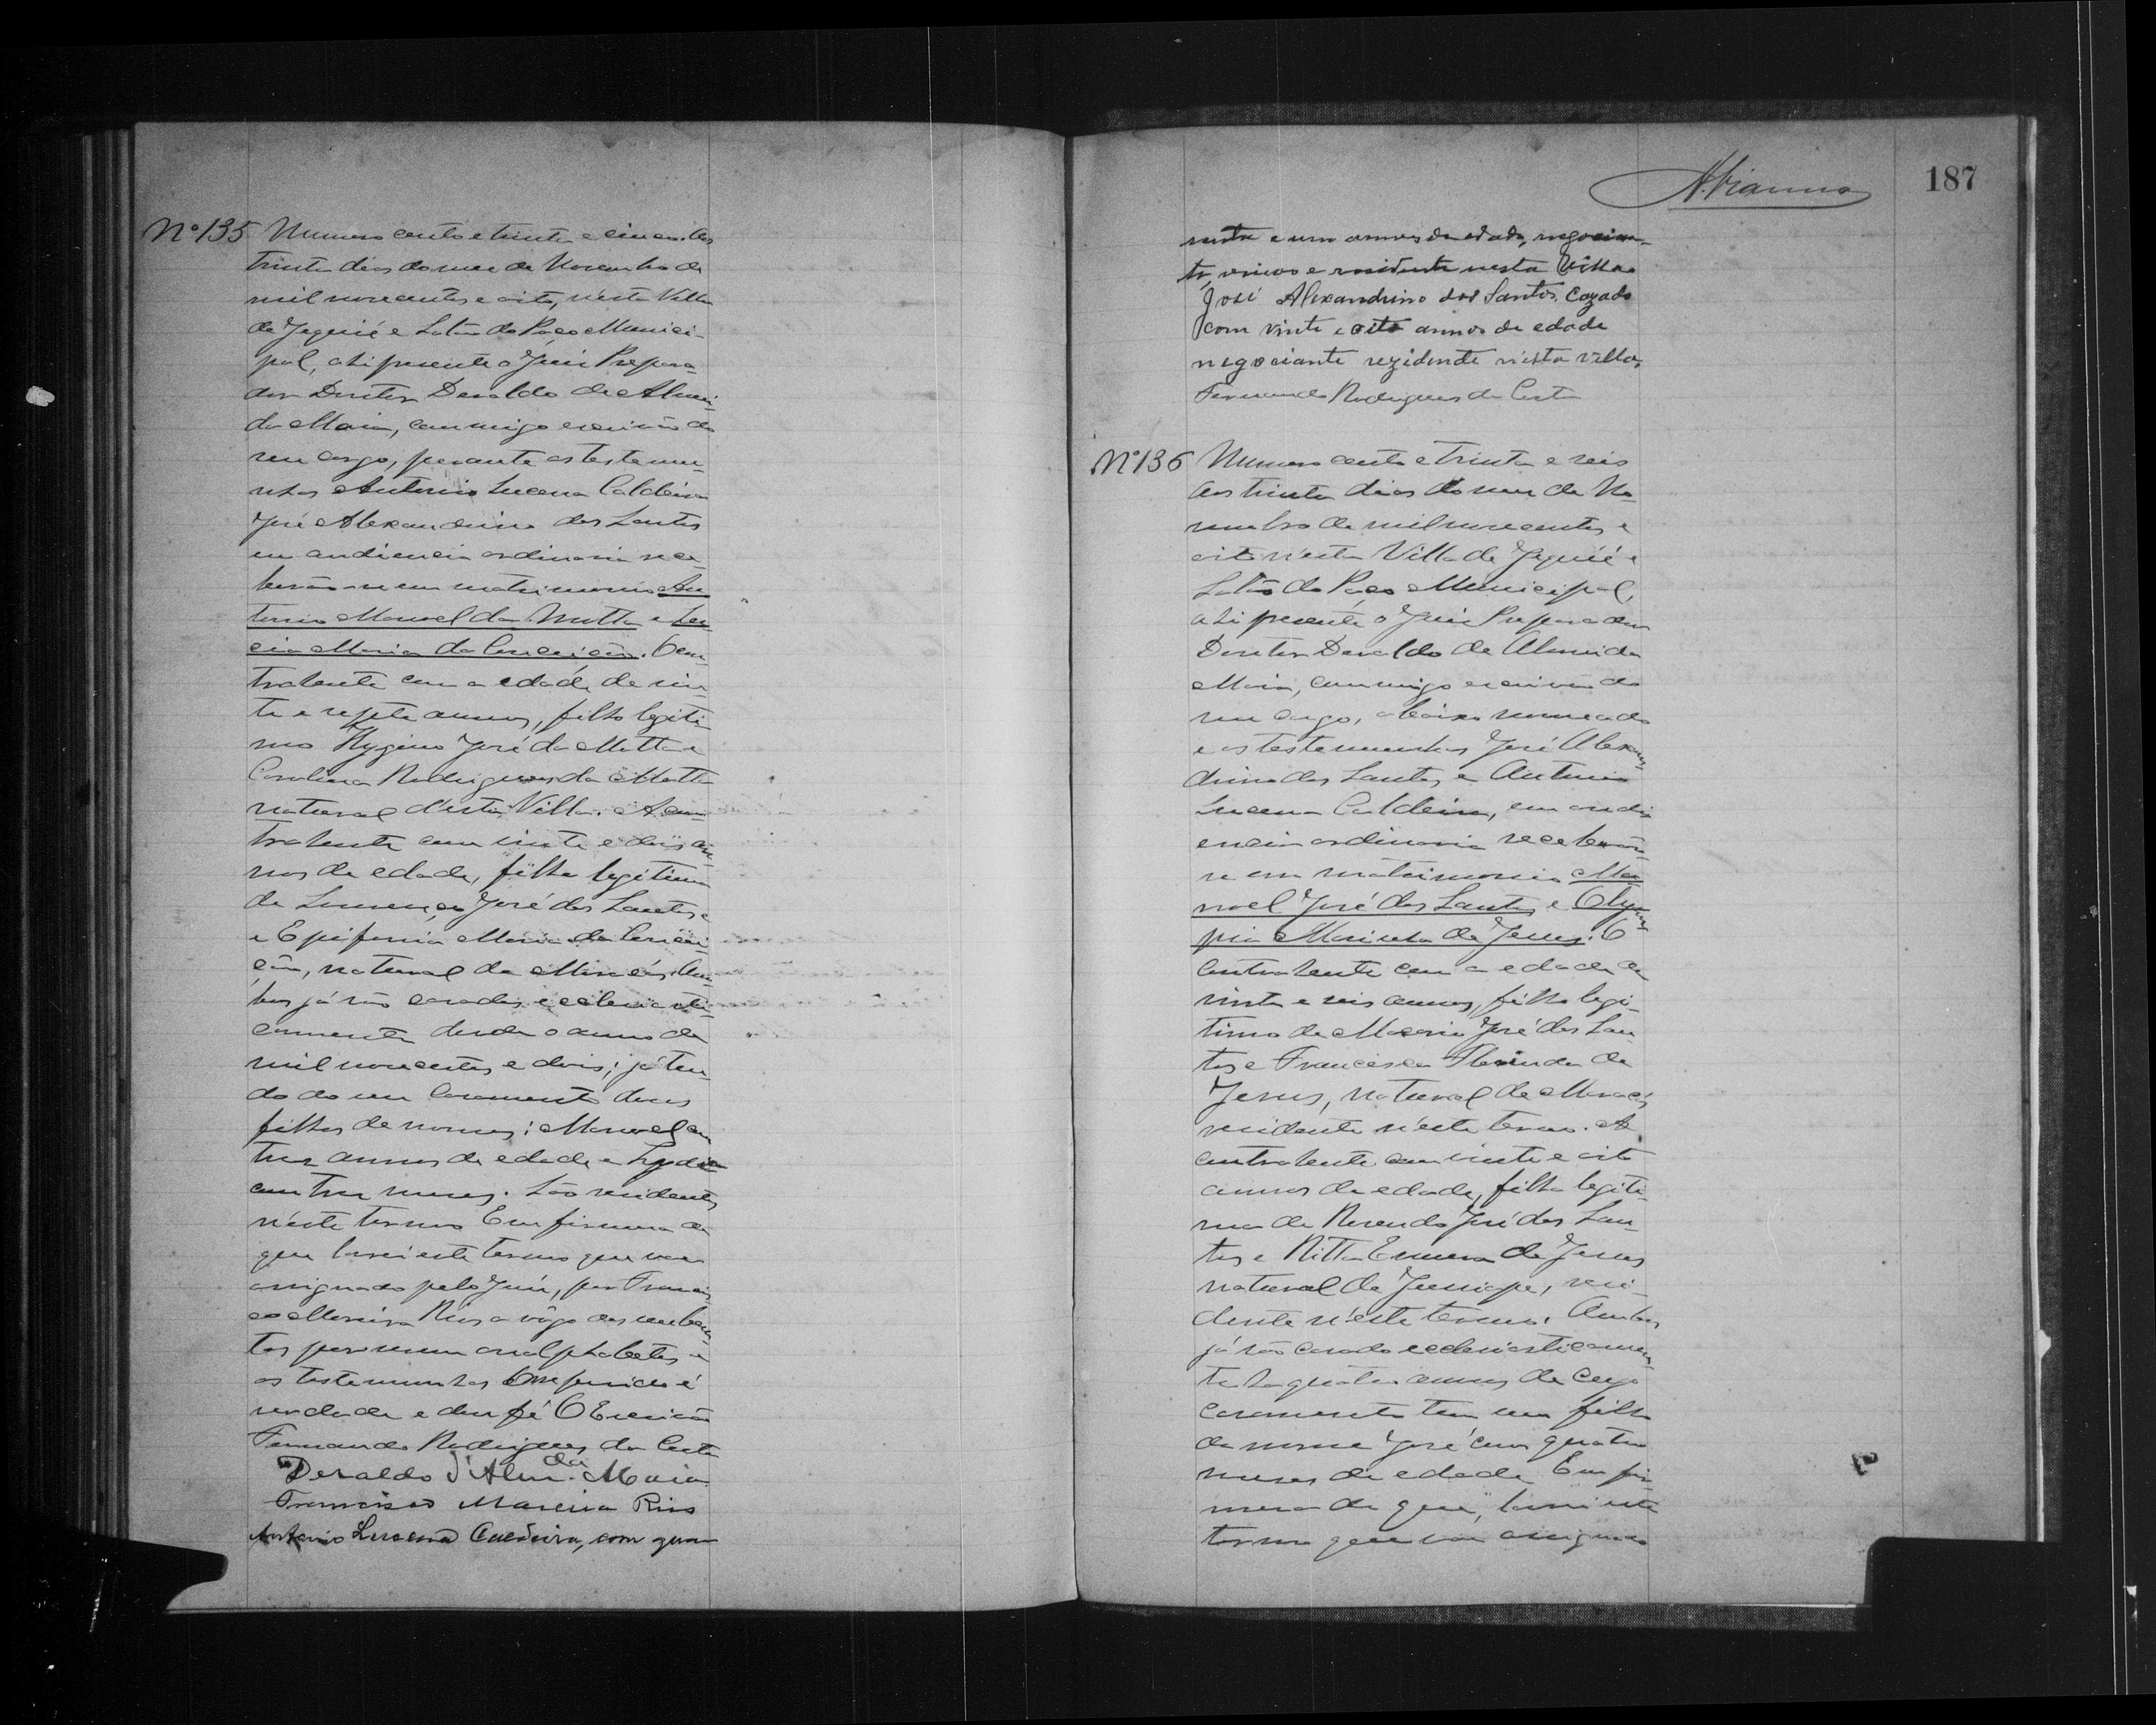 Nº 135 Numero cento e trinta e cinco. Aos
trinta dias do mez de Novembro de
mil novecentos e oito, n'esta Villa
de Jequié e Salão do Paço Munici-
pal, ahi presente o Juiz Prepara-
dor Doutor Deraldo de Almei-
da Maia, commigo escrivão do
seu cargo, perante as testemu-
nhas Antonio Lucena Caldeira
José Alexandrino dos Santos
em audiencia ordinaria rece-
berão-se em matrimonio An
tonio Manoel da Motta e
Maria da Conceição. O con-
trahente com a edade de vin-
te e sete annos, filho legiti-
mo Hygino José da Motta e
Carolina Rodrigues da Motta
natural d'esta Villa. A con-
trahente com vinte e dois an-
nos de edade, filha legitima
de Lourenço José dos Santos e
e Epifania Maria da Concei-
ção, natural de Maracás. Am-
bos já são casados ecclesiasti-
camente desde o anno de
mil novecentos e dois; já ten-
do do seu casamento dous
filhos de nomes: Manoel com
tres annos de edade e Lydia
com tres meses. São residentes
n'este termo. Em firmeza do
que lavrei este termo que vae
assignado pelo Juiz, por Francis-
co Moreira Rios a rôgo dos nuben-
tes por serem analphabetos e
as testemunhas. O referido é
verdade e dou fé. O Escrivão
Fernando Rodrigues da Costa
Deraldo d'Almda. Maia
Francisco Mareira Rios
Antonio Lucena Caldeira, com quar-
187
renta e um annos de edade, negocian-
te, viuvo e residente nesta Villa
José Alexandrino dos Santos, Cazado
com vinte e oito annos de edade
negociante rezidente n'esta villa,
Fernando Rodrigues da Costa
Nº 136 Numero cento e trinta e seis
Aos trinta dias do mez de No-
vembro de mil novecentos e
oito n'esta Villa de Jequié e
Salão do Paço Municipal,
ahi presente o Juiz Preparador
Doutor Deraldo de Almeida
Maia, commigo escrivão do
seu cargo, abaixo nomeado
e as testemunhas José Alexan-
drino dos Santos e Antonio
Lucena Caldeira, em audi-
encia ordinaria receberão-
se em matrimonio Ma-
noel José dos Santos e Olym-
pia de Jesus. O
contrahente com a edade de
vinte e seis annos, filho legi-
timo de José dos San-
tos e Francisca de
Jesus, natural de Maracás
residente n'este termo. A
contrahente com vinte e oito
annos de edade, filha legiti-
ma de José dos San-
tos e Ritta de Jesus
natural de Jussiape, resi-
dente n'este termo. Ambos
já são casado ecclesiasticamen-
te ha quatro annos de cujo
casamento tem um filho
de nome José com quatro
meses de edade. Em fir-
meza de que, lavrei este
termo que vae assignado